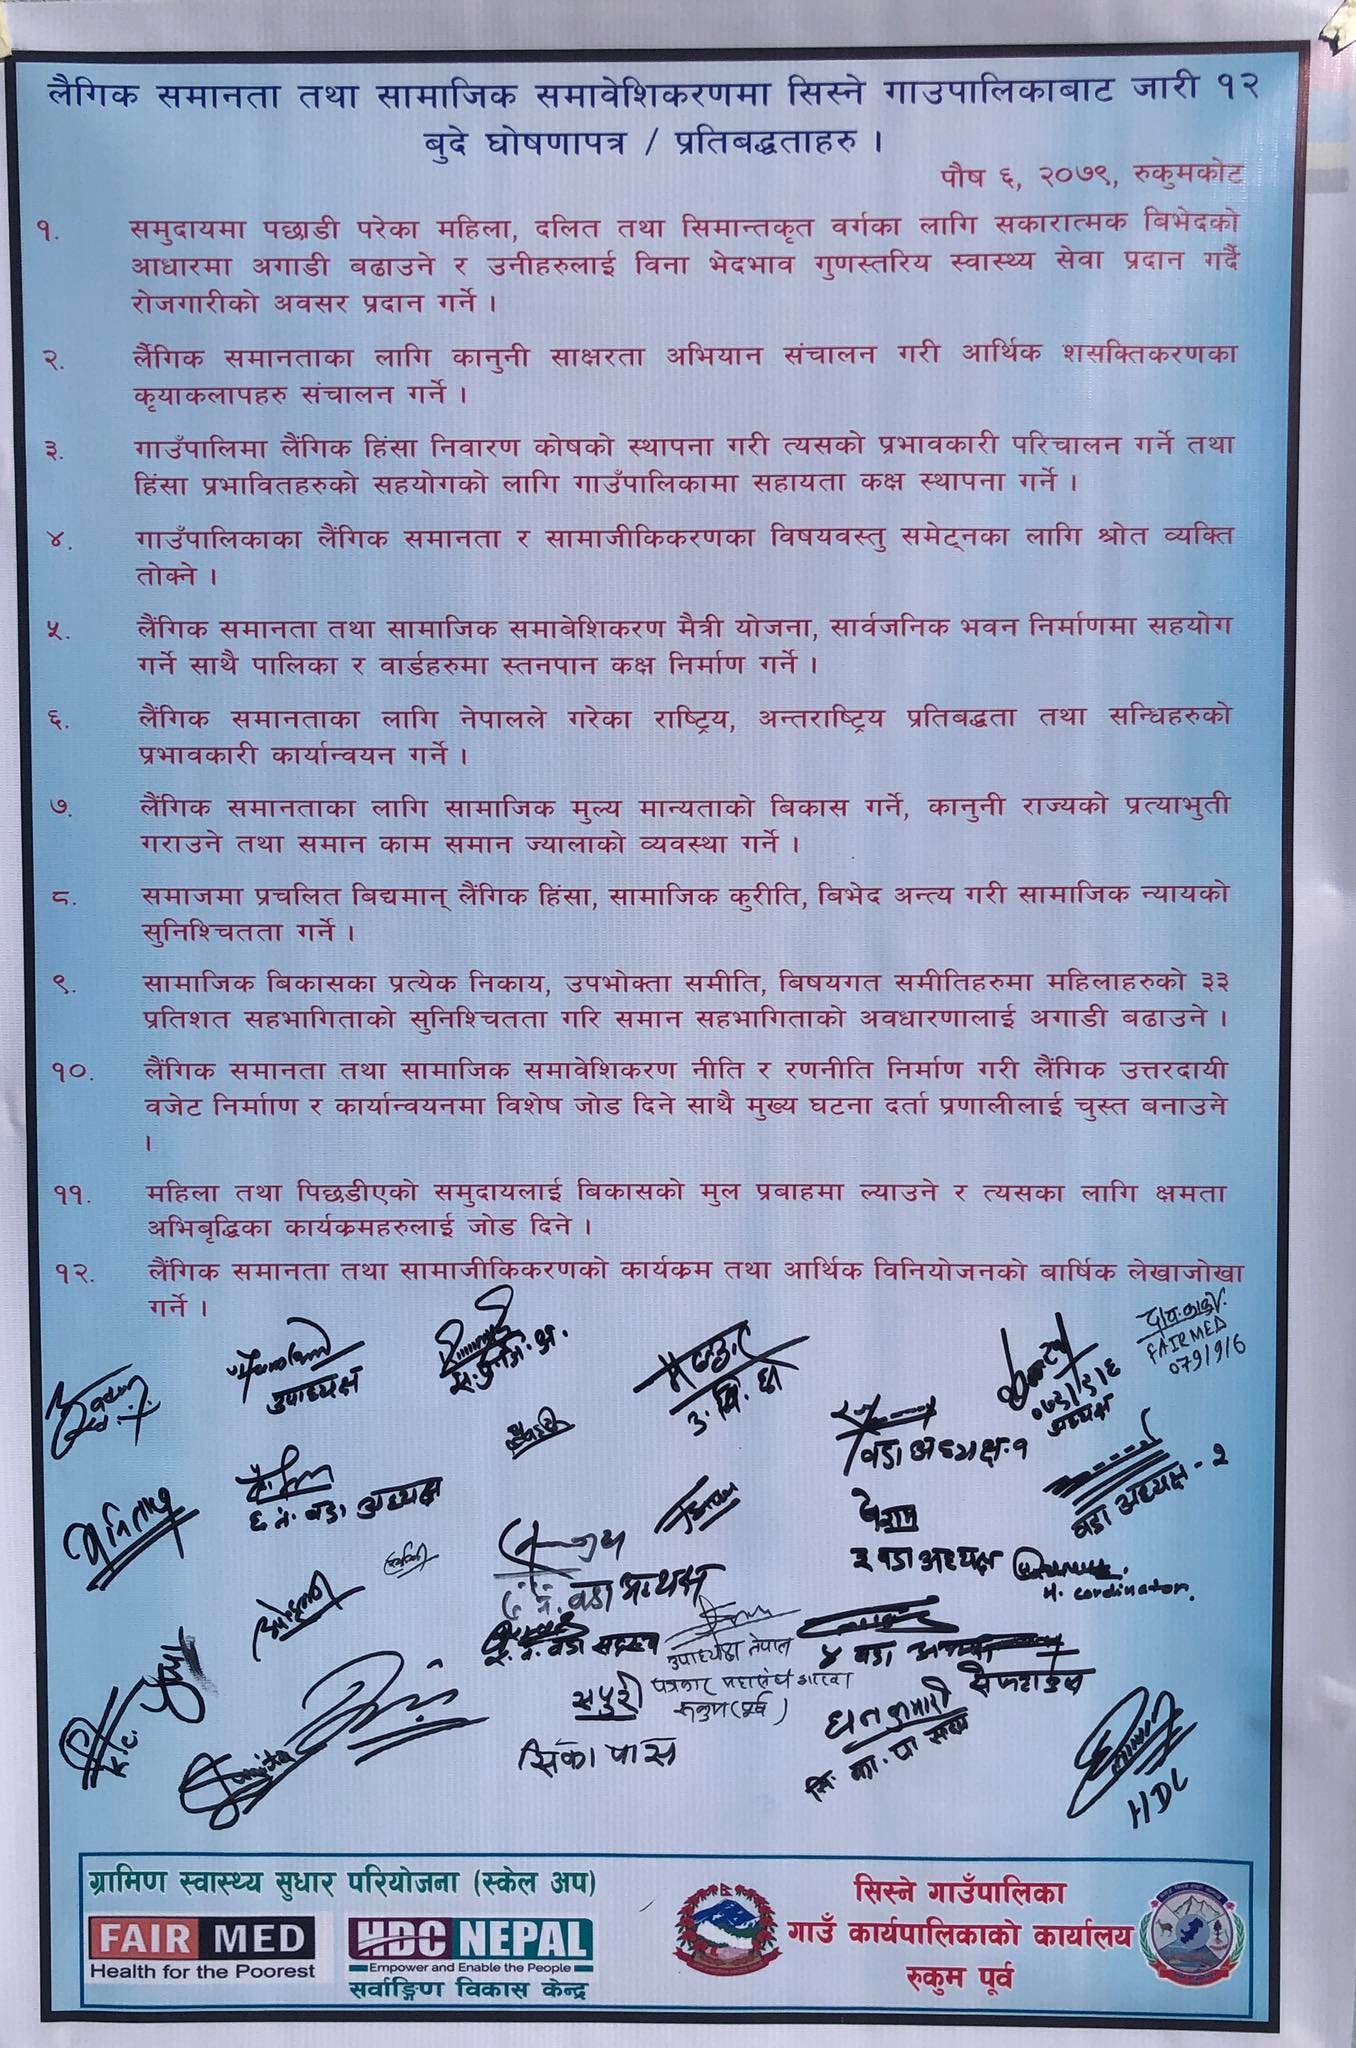 लैगिक समानता तथा सामाजिक समावेशिकरणमा सिस्ने गाउपालिकाबाट जारी १२
बुदे घोषणापत्र / प्रतिबद्धताहरु ।
पौष ६, २०७९, रुकुमकोट
१. समुदायमा पछाडी परेका महिला, दलित तथा सिमान्तकृत वर्गका लागि सकारात्मक बिभेदको
आधारमा अगाडी बढाउने र उनीहरुलाई विना भेदभाव गुणस्तरिय स्वास्थ्य सेवा प्रदान गर्दै
रोजगारीको अवसर प्रदान गर्ने ।
२. लैंगिक समानताका लागि कानुनी साक्षरता अभियान संचालन गरी आर्थिक शसक्तिकरणका
कृयाकलापहरु संचालन गर्ने ।
३. गाउँपालिमा लैंगिक हिंसा निवारण कोषको स्थापना गरी त्यसको प्रभावकारी परिचालन गर्ने तथा
हिंसा प्रभावितहरुको सहयोगको लागि गाउँपालिकामा सहायता कक्ष स्थापना गर्ने ।
४. गाउँपालिकाका लैंगिक समानता र सामाजीकिकरणका विषयवस्तु समेट्नका लागि श्रोत व्यक्ति
तोक्ने ।
५. लैंगिक समानता तथा सामाजिक समाबेशिकरण मैत्री योजना, सार्वजनिक भवन निर्माणमा सहयोग
गर्ने साथै पालिका र वार्डहरुमा स्तनपान कक्ष निर्माण गर्ने ।
६. लैंगिक समानताका लागि नेपालले गरेका राष्ट्रिय, अन्तराष्ट्रिय प्रतिबद्धता तथा सन्धिहरुको
प्रभावकारी कार्यान्वयन गर्ने ।
७. लैंगिक समानताका लागि सामाजिक मुल्य मान्यताको बिकास गर्ने, कानुनी राज्यको प्रत्याभुती
गराउने तथा समान काम समान ज्यालाको व्यवस्था गर्ने ।
८. समाजमा प्रचलित बिद्यमान् लैंगिक हिंसा, सामाजिक कुरीति, बिभेद अन्त्य गरी सामाजिक न्यायको
सुनिश्चितता गर्ने ।
९. सामाजिक बिकासका प्रत्येक निकाय, उपभोक्ता समीति, बिषयगत समीतिहरुमा महिलाहरुको ३३
प्रतिशत सहभागिताको सुनिश्चितता गरि समान सहभागिताको अवधारणालाई अगाडी बढाउने ।
१०. लैंगिक समानता तथा सामाजिक समावेशिकरण नीति र रणनीति निर्माण गरी लैंगिक उत्तरदायी
वजेट निर्माण र कार्यान्वयनमा विशेष जोड दिने साथै मुख्य घटना दर्ता प्रणालीलाई चुस्त बनाउने
।
११. महिला तथा पिछडीएको समुदायलाई बिकासको मुल प्रबाहमा ल्याउने र त्यसका लागि क्षमता
अभिबृद्धिका कार्यक्रमहरुलाई जोड दिने ।
१२. लैंगिक समानता तथा सामाजीकिकरणको कार्यक्रम तथा आर्थिक विनियोजनको बार्षिक लेखाजोखा
गर्ने ।
FAIRMED
079/9/6
उपाध्यक्ष
अध्यक्ष
वडा अध्यक्ष-१
वडा अध्यक्ष-२
६ नं. वडा अध्यक्ष
३ वडा अध्यक्ष
वडा अध्यक्ष
M. cordinator.
उपाध्यक्ष नेपाल
पत्रकार महासंघ शाखा
रुकुम (पूर्व)
धनकुमारी
HDC
ग्रामिण स्वास्थ्य सुधार परियोजना (स्केल अप)
FAIRMED
Health for the Poorest
HDC NEPAL
Empower and Enable the People
सर्वाङ्गिण विकास केन्द्र
सिस्ने गाउँपालिका
गाउँ कार्यपालिकाको कार्यालय
रुकुम पूर्व